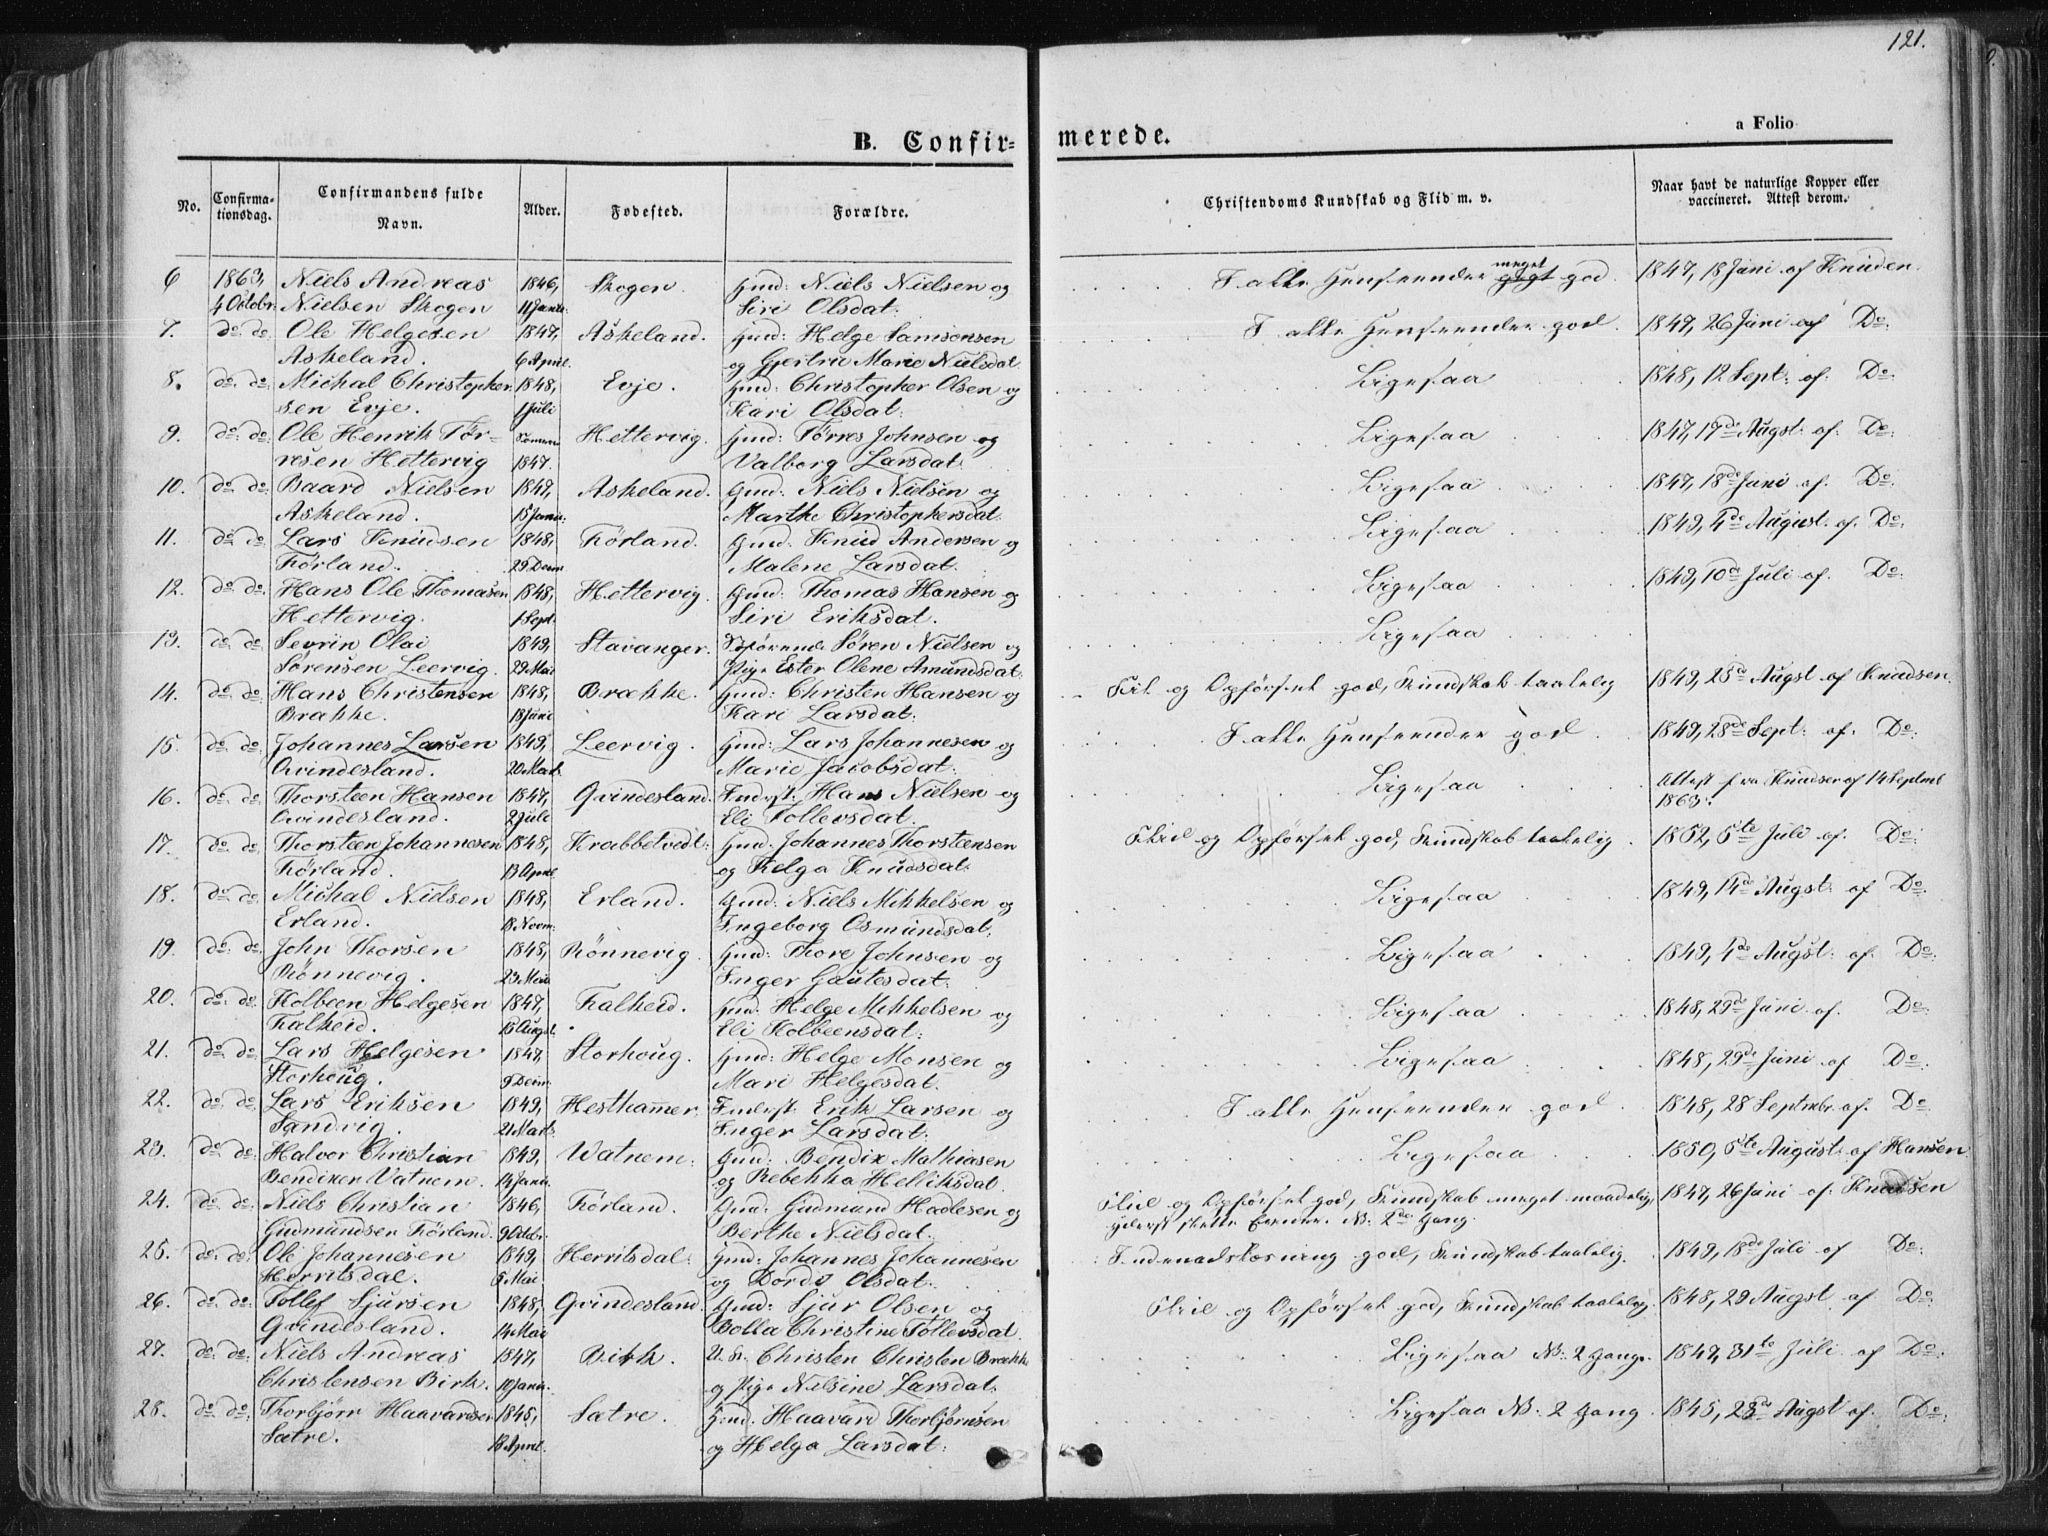 121.
a Folio
B. Confir= merede.
No. Confirma-tionsdag. Confirmandens fulde Navn. Alder. Fødested. Forældre. Christendoms Kundskab og Flid m. v. Naar havt de naturlige Kopper eller vaccineret. Attest derom.
6 1863, Niels Andreas 1846, Skogen. Gmd: Niels Nielsen og I alle Henseender meget god. 1847, 18 Juni af Knudsen
4 Octobr: Nielsen Skogen 11 Janu: Siri Olsdat:
7. do: do: Ole Helgesen 1847, Askeland. Gmd: Helge Samsonsen I alle Henseender god. 1847, 26 Juni af Do:
Askeland. 6 April. og Gjertrū Marie Nielsdat:
8. do: do: Michal Christopher 1848, Evje. Gmd: Christopher Olsen og Ligesaa 1848, 12 Sept: af. Do:
sen Evje. 1 Juli Kari Olsdat:
9. do: do: Ole Henrik Tør- Hettervig. Gmd: Tørres Johnsen og Ligesaa 1847, 17de Augst: af: Do:
resen Hettervig 1847. Valborg Larsdat:
10. do: do: Baard Nielsen 1849, Askeland. Gmd: Niels Nielsen og Ligesaa 1847, 18de Juni af. Do:
Askeland. 15 Janu: Marthe Christophersdat:
11. do: do: Lars Knudsen 1848, Førland. Gmd: Knud Andersen og Ligesaa 1849, 4de August: af. Do:
Førland. 29 Decm Malene Larsdat:
12. do: do: Hans Ole Thomasen 1848, Hettervig. Gmd: Thomas Hansen og Ligesaa 1849, 10de Juli af. Do:
Hettervig. 1 Sept. Siri Eriksdat.
13. do: do: Sevrin Olai 1849, Stavanger. Søren Nielsen og Ligesaa
Sørensen Leervig. 29 Mai Pige Ester Olene Amundsdat:
14. do: do: Hans Christensen 1848, Brække. Gmd: Christen Hansen og Flid og Opførsel god, Kundskab taalelig 1849, 25de Augst af Knudsen
Brække. 18 Juni Kari Larsdat:
15. do: do: Johannes Larsen 1849, Leervig. Gmd: Lars Johannesen og I alle Henseender god 1849, 28de Sept: af. Do:
Qvindesland. 20 Mart: Marie Jacobsdat:
16. do: do: Thorsteen Hansen 1847, Qvindesland. Inderst: Hans Nielsen og Ligesaa Attest fra Knudsen af 14 Septmb
Qvindesland. 2 Juli Eli Tollevsdat. 1863.
17. do: do: Thorsteen Johannesen 1848, Krabbetvedt: Gmd: Johannes Thorsteensen Flid og Opførsel god, Kundskab taalelig. 1852, 5te Juli af. Do:
Førland. 13 April og Helga Knudsdat.
18. do: do: Michal Nielsen 1848, Erland. Gmd: Niels Mikkelsen og Ligesaa 1849, 14de Augst: af Do:
Erland. 13 Novm: Ingeborg Osmundsdat:
19. do: do: John Thorsen 1848, Rønnevig. Gmd: Thore Johnsen og Ligesaa 1849, 4de Augst: af. Do:
Rønnevig. 23 Mai Inger Gautesdat:
20. do: do: Kolbeen Helgesen 1847, Falkeid. Gmd: Helge Mikkelsen og Ligesaa 1848, 29de Juni af. Do:
Falkeid. 15 Augst. Eli Kolbeensdat:
21. do: do: Lars Helgesen 1847, Storhoug. Gmd: Helge Monsen og Ligesaa 1848, 29de Juni af Do:
Storhoug. 9 Decm: Mari Helgesdat.
22. do: do: Lars Eriksen 1849, Hesthammer. Inderst: Erik Larsen og I alle Henseender god 1848, 28 Septmbr. af. Do:
Sandvig. 21 Mart: Inger Larsdat:
23. do: do: Halvor Christian 1849, Watnem: Gmd: Bendix Mathiasen Ligesaa 1850, 5te August: af Hansen
Bendixen Vatnem. 14 Janu: og Rebekka Helliksdat.
24. do: do: Niels Christian 1846, Førland. Gmd: Gudmund Hadlesen og Flid og Opførsel god, Kundskab meget maadelig, 1847, 26 Juni af: Knudsen
Gudmundsen Førland. 9 Octbr: Berthe Nielsdat: yderst slette Evner. NB: 2de Gang.
25. do: do: Ole Johannesen 1849, Herritsdal: Gmd: Johannes Johannesen Indenadslæsning god, Kundskab taalelig. 1849, 18de Juli af Do:
Herritsdal. 5 Mai og Dordo Olsdat:
26. do: do: Tollef Sjursen 1848, Qvindesland. Gmd: Sjur Olsen og Flid og Opførsel god, Kundskab taalelig. 1848, 29 Augst af Do:
Qvindesland. 14 Mai Bolla Christine Tollevsdat.
27. do: do: Niels Andreas 1847, Birk. U. K. Christen Christen Brække Ligesaa NB: 2 Gange. 1849, 31te Juli af Do:
Christensen Birk. 10 Janu: og Pige Nilsine Larsdat:
28. do: do: Thorbjørn Haavardsen 1845, Sætre. Gmd. Haavard Thorbjørnsen Ligesaa NB: 2 Gang 1845, 23de Augst af. Do:
Sætre. 13 April. og Helga Larsdat: